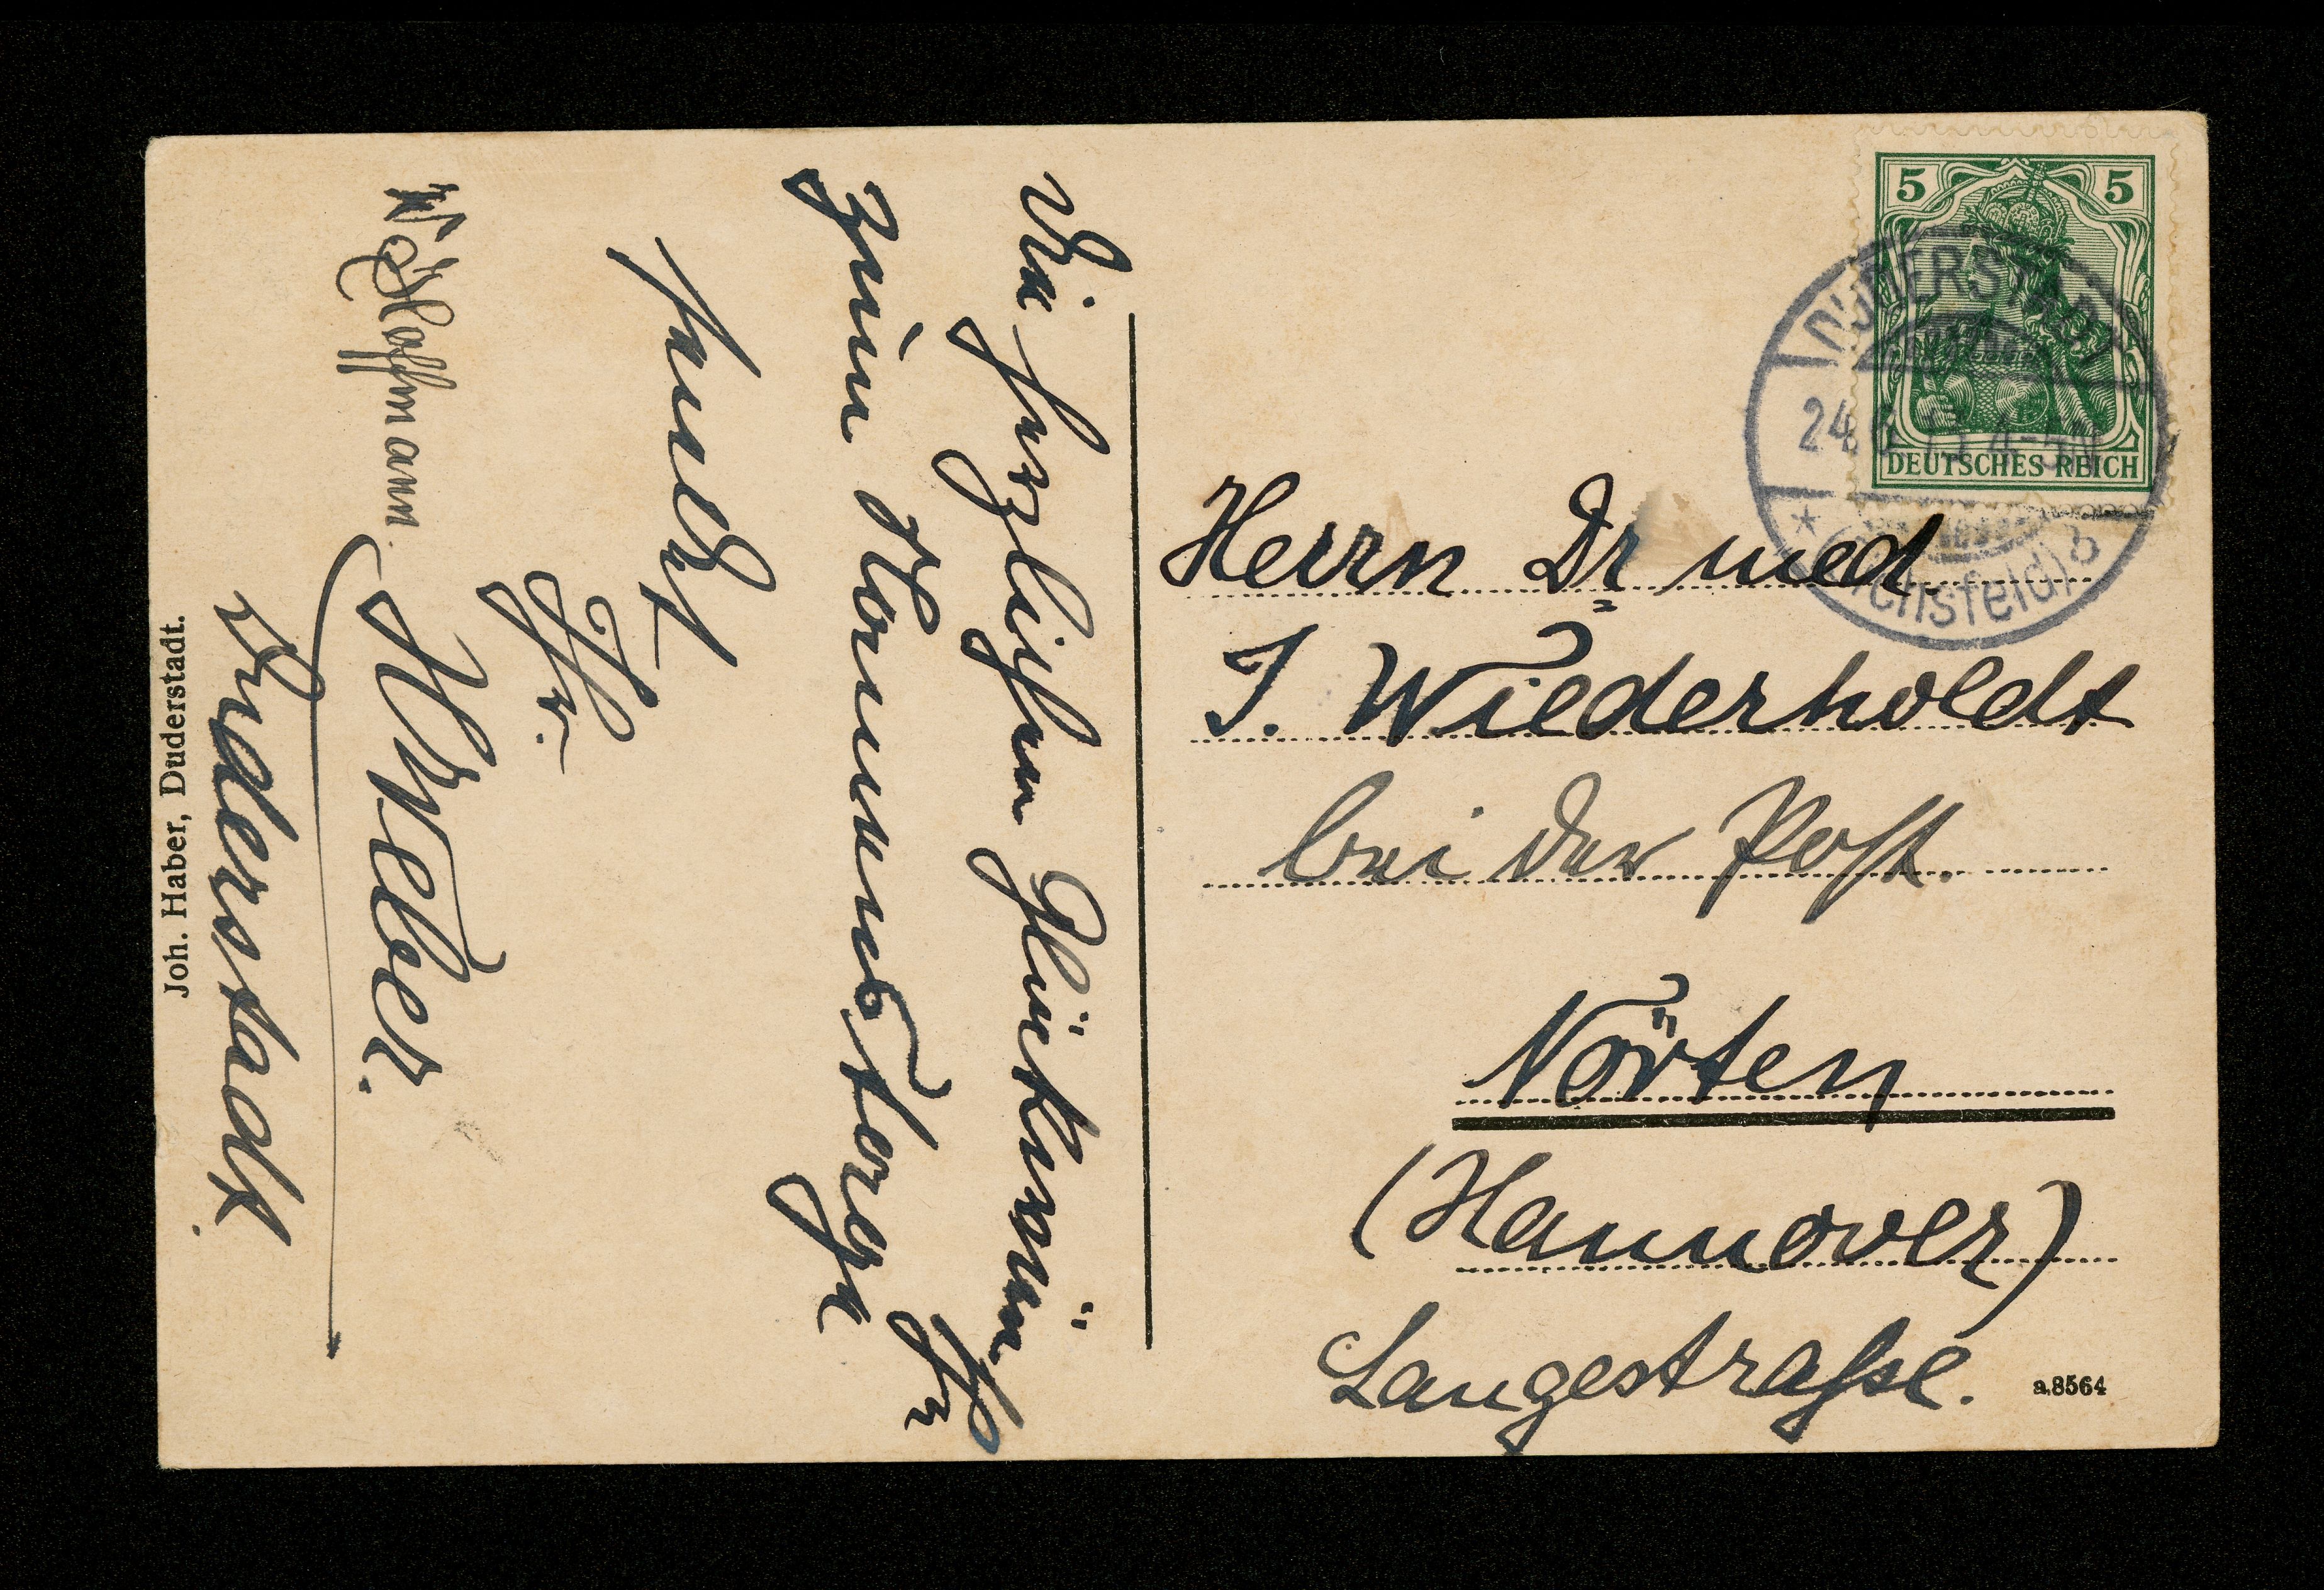 Die herzlichsten Glückwünsche
zum Namenstage
sendet
Ihr
H Weber.
W. Hoffmann
Duderstadt.
Joh. Haber, Duderstadt.
5 5
DEUTSCHES REICH
DUDERSTADT
24
(Eichsfeld) b
Herrn Dr med.
J. Wiederholdt
bei der Post.
Nörten
(Hannover)
Langestrasse.
a.8564